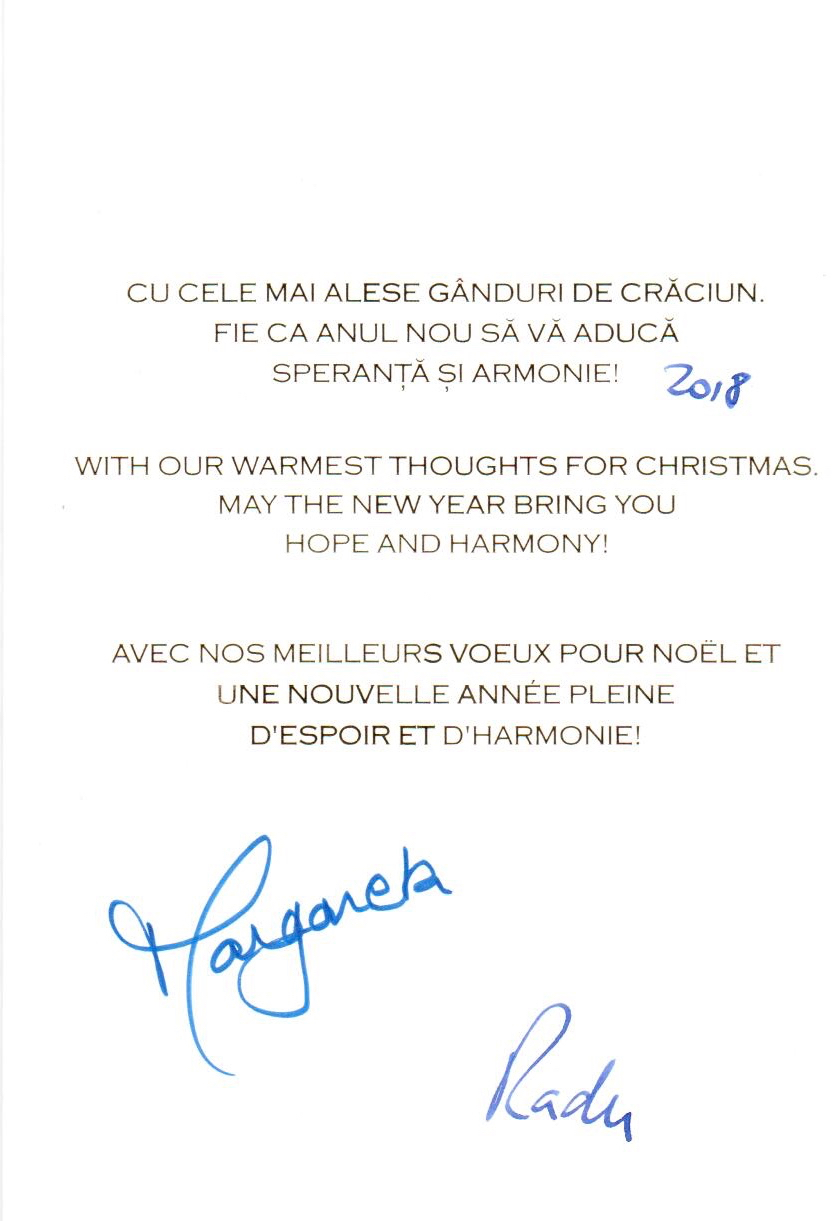 CU CELE MAI ALESE GÂNDURI DE CRĂCIUN.
FIE CA ANUL NOU SĂ VĂ ADUCĂ
SPERANȚĂ ȘI ARMONIE! 2018
WITH OUR WARMEST THOUGHTS FOR CHRISTMAS.
MAY THE NEW YEAR BRING YOU
HOPE AND HARMONY!
AVEC NOS MEILLEURS VOEUX POUR NOËL ET
UNE NOUVELLE ANNÉE PLEINE
D'ESPOIR ET D'HARMONIE!
Margareta
Radu